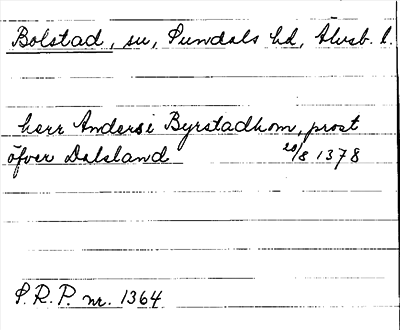 Bolstad, sn, Sundals hd, Älvsb. l.
herr Andersi Byrstadhom, prost
öfver Dalsland 20/8 1378
P.R.P. nr. 1364